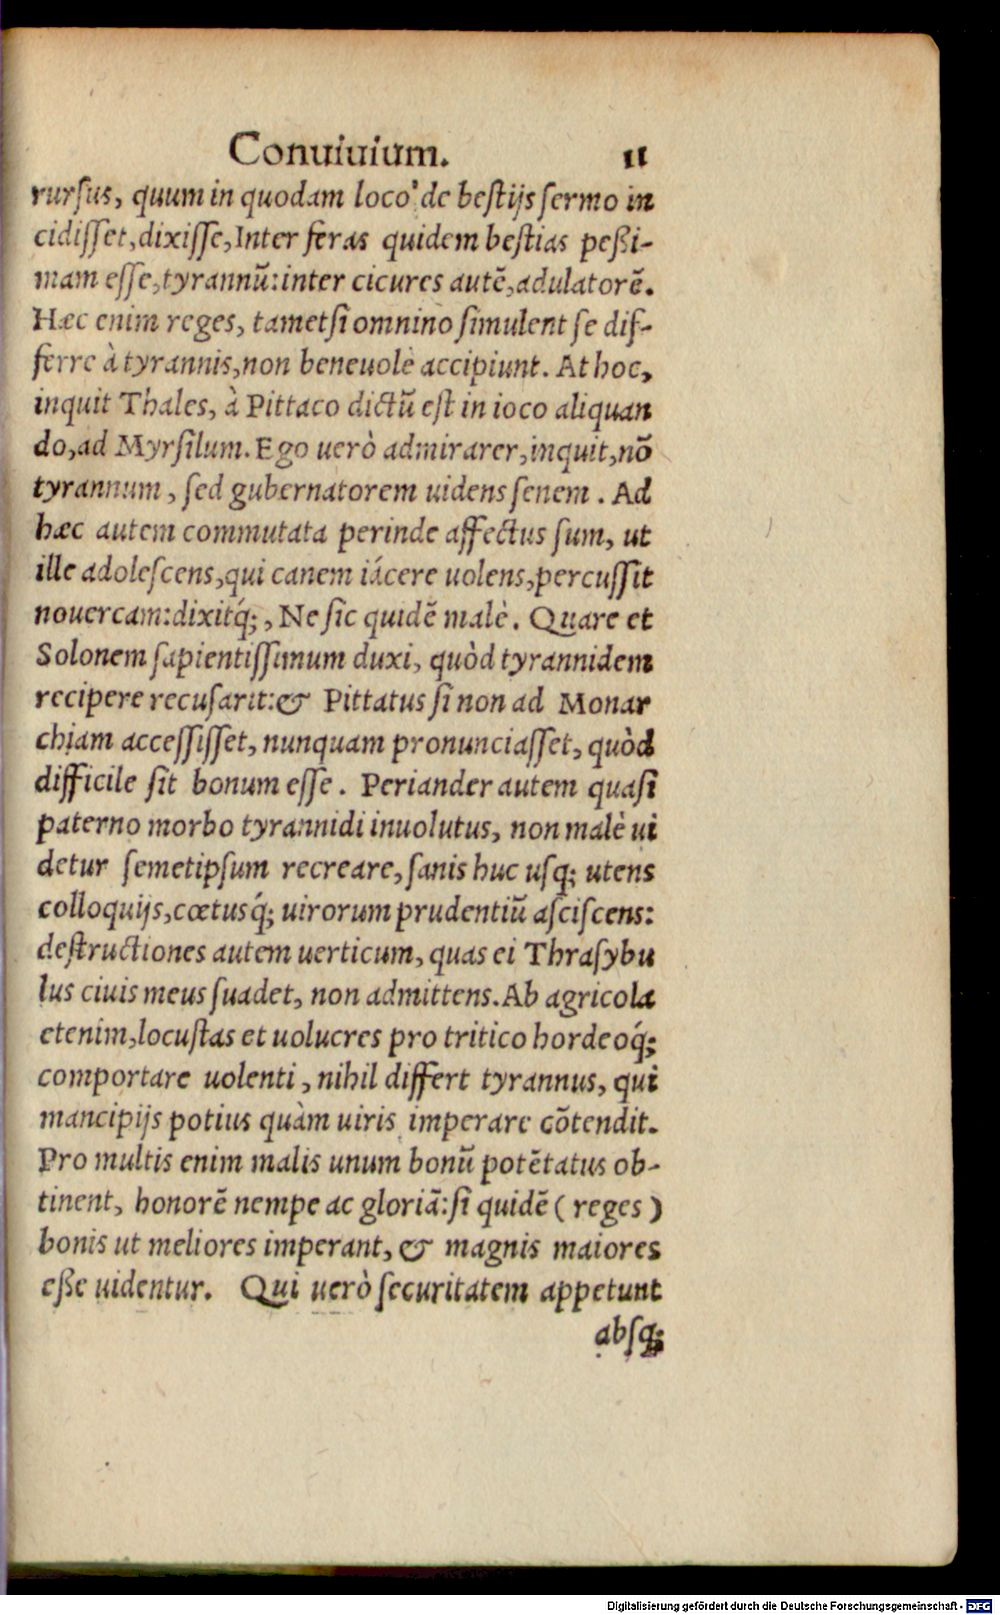 Conuiuium. 11
rurſus, quum in quodam loco de beſtijs ſermo in
cidiſſet, dixiſſe, Inter feras quidem beſtias peßi-
mam eſſe, tyrannū: inter cicures autē, adulatorē.
Hæc enim reges, tametſi omnino ſimulent ſe dif-
ferre à tyrannis, non beneuolè accipiunt. At hoc,
inquit Thales, à Pittaco dictū eſt in ioco aliquan
do, ad Myrſilum. Ego uerò admirarer, inquit, nō
tyrannum, ſed gubernatorem uidens ſenem. Ad
hæc autem commutata perinde affectus ſum, ut
ille adoleſcens, qui canem iácere uolens, percuſſit
nouercam: dixitq́;, Ne ſic quidē malè. Quare et
Solonem ſapientiſſimum duxi, quòd tyrannidem
recipere recuſarit: & Pittatus ſi non ad Monar
chiam acceſſiſſet, nunquam pronunciaſſet, quòd
difficile ſit bonum eſſe. Periander autem quaſi
paterno morbo tyrannidi inuolutus, non malè ui
detur ſemetipſum recreare, ſanis huc uſq; utens
colloquijs, cœtusq́; uirorum prudentiū aſciſcens:
deſtructiones autem uerticum, quas ei Thraſybu
lus ciuis meus ſuadet, non admittens. Ab agricola
etenim, locuſtas et uolucres pro tritico hordeoq́;
comportare uolenti, nihil differt tyrannus, qui
mancipijs potius quàm uiris imperare cōtendit.
Pro multis enim malis unum bonū potētatus ob-
tinent, honorē nempe ac gloriā: ſi quidē (reges)
bonis ut meliores imperant, & magnis maiores
eße uidentur. Qui uerò ſecuritatem appetunt
abſq;
Digitalisierung gefördert durch die Deutsche Forschungsgemeinschaft - DFG